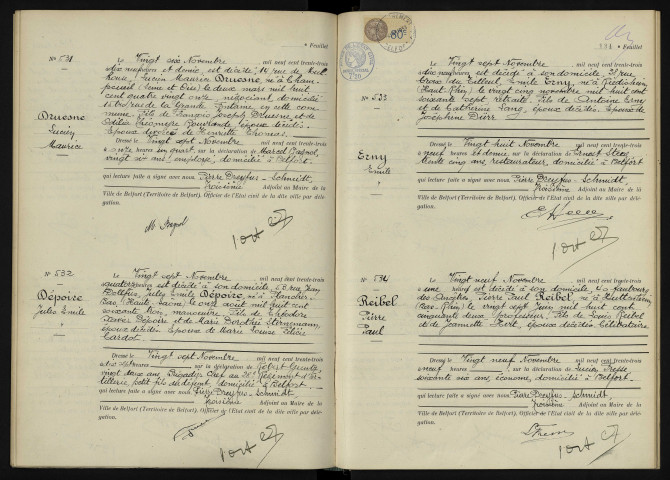 N° 531
Druesne
Lucien
Maurice
Le Vingt six Novembre mil neuf cent trente-trois
dix neuf heures et demie, est décédé, 14 rue de
Lucien Maurice Druesne, né à
(Seine et Oise) le deux mars mil huit
cent quatre vingt onze, négociant, domicilié
rue de la Grande Fontaine, en cette com
mune, fils de François Joseph Druesne, et de
époux décédés.
Epoux divorcé de Henriette Thomas.
Dressé le Vingt sept Novembre mil neuf cent trente-trois
à onze heures un quart sur la déclaration de Marcel
vingt six ans, employé, domicilié à Belfort
qui lecture faite a signé avec nous, Pierre Dreyfus-Schmidt,
troisième Adjoint au Maire de la
Ville de Belfort (Territoire de Belfort), Officier de l'Etat civil de la dite ville par délé-
gation.
N° 532
Dépoire
Jules Emile
Le Vingt sept Novembre mil neuf cent trente-trois
est décédé à son domicile, rue Jean
Dollfus, Jules Emile Dépoire, né à Plancher
Bas, (Haute Saône) le onze août mil huit cent
soixante trois, manoeuvre, fils de
Xavier Dépoire et de Marie Dorothée
époux décédés. Epoux de Marie Louise
Cardot.
Dressé le Vingt sept Novembre mil neuf cent trente-trois
heures sur la déclaration de Robert
vingt deux ans, Brigadier Chef au Régiment d'Ar
tillerie, petit fils du défunt, domicilié à Belfort
qui lecture faite a signé avec nous, Pierre Dreyfus-Schmidt,
troisième Adjoint au Maire de la
Ville de Belfort (Territoire de Belfort), Officier de l'Etat civil de la dite ville par délé-
gation.
Feuillet
N° 533
Erny
Emile
Le Vingt sept Novembre mil neuf cent trente-trois
dix neuf heures est décédé à son domicile, 31 rue
Croix du Tilleul, Emile Erny, né à
(Haut Rhin), le vingt cinq novembre mil huit cent
soixante sept, retraité, fils de Antoine Erny
et de Catherine Lang, époux décédés. Epoux de
Joséphine Dürr.
Dressé le Vingt huit Novembre mil neuf cent trente-trois
à neuf heures et demie sur la déclaration de Ernest
trente cinq ans, restaurateur, domicilié à Belfort
qui lecture faite a signé avec nous, Pierre Dreyfus-Schmidt,
troisième Adjoint au Maire de la
Ville de Belfort (Territoire de Belfort), Officier de l'Etat civil de la dite ville par délé-
gation.
N° 534
Reibel
Pierre
Paul
Le Vingt neuf Novembre mil neuf cent trente-trois
à une heure est décédé à son domicile, faubourg
des Ancêtres, Pierre Paul Reibel, né à
(Bas Rhin), le vingt sept Juin mil huit cent
cinquante deux, professeur, fils de Louis Reibel
et de Jeannette Hort, époux décédés. Célibataire.
Dressé le Vingt neuf Novembre mil neuf cent trente-trois
à neuf heures sur la déclaration de Lucien
soixante six ans, économe, domicilié à Belfort
qui lecture faite a signé avec nous, Pierre Dreyfus-Schmidt,
troisième Adjoint au Maire de la
Ville de Belfort (Territoire de Belfort), Officier de l'Etat civil de la dite ville par délé-
gation.